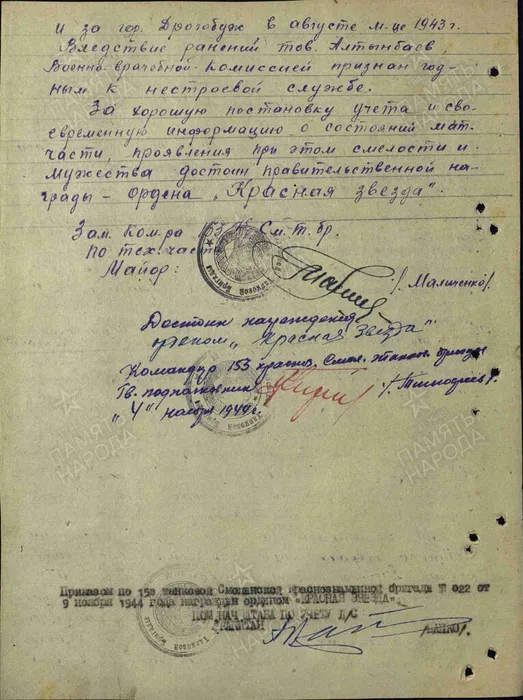 и за гор. Дрогобуж в августе м-це 1943 г.
Вследствие ранений тов. Алтынбаев,
Военно-врачебной Комиссией признан год-
ным к нестроевой службе.
За хорошую постановку учета и сво-
евременную информацию о состоянии мат.
части, проявления при этом смелости и
мужества достоин правительственной на-
грады – ордена „Красная звезда".
Зам. Ком-ра 153 См. т. бр.
по тех. части
Майор: /Маличенко/.
Достоин награждения
орденом „Красная Звезда"
Командир 153 красноз. Смол. танков. бригады
Гв. подполковник
„4" ноября 1944 г.
ПАМЯТЬ
НАРОДА
Приказом по 153 танковой Смоленской краснознаменной бригаде № 022 от
9 ноября 1944 года награжден орденом "КРАСНАЯ ЗВЕЗДА".
ПОМ НАЧ ШТАБА ПО УЧЕТУ Л/С
КАПИТАН